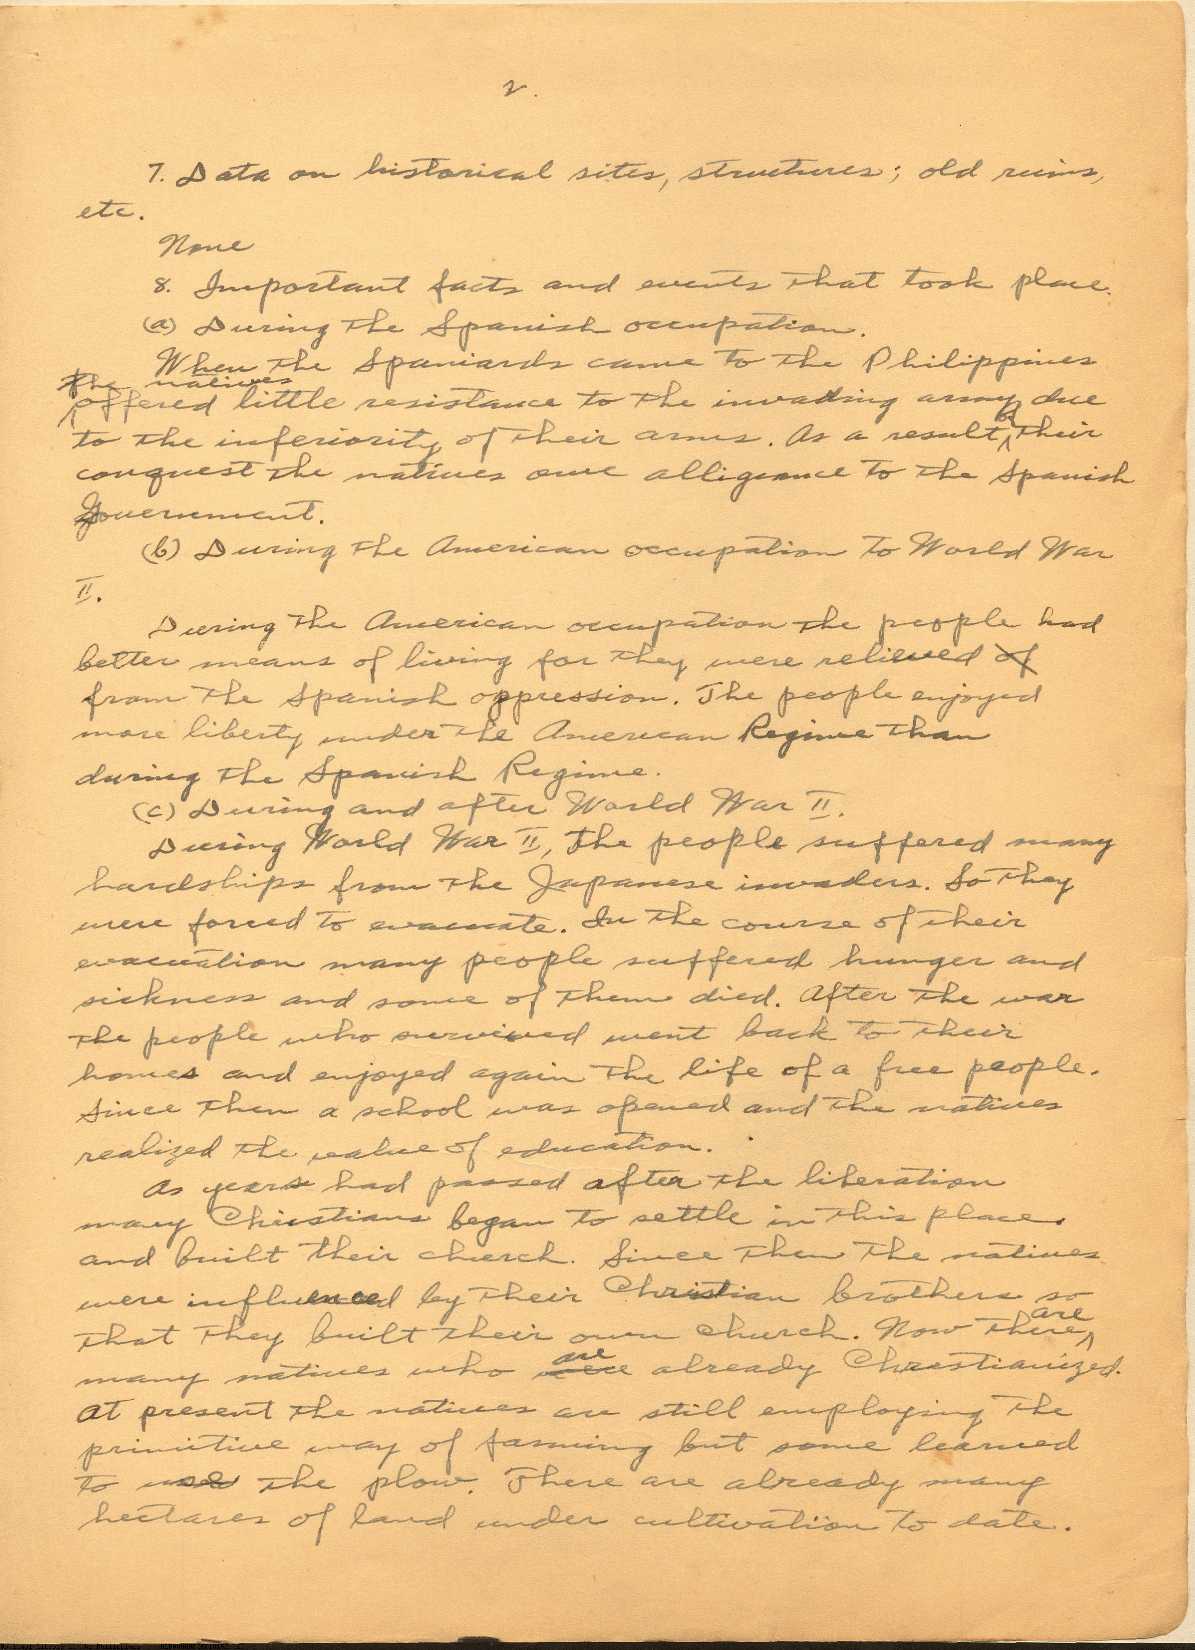 2.
7. Data on historical sites, structures; old ruins,
etc.
None
8. Important facts and events that took place.
(a) During the Spanish occupation.
When the Spaniards came to the Philippines
the natives
offered little resistance to the invading army due
to the inferiority of their arms. As a result of their
conquest the natives owe alligeance to the Spanish
Government.
(b) During the American occupation to World War
II.
During the American occupation the people had
better means of living for they were relieved of
from the Spanish oppression. The people enjoyed
more liberty under the American Regime than
during the Spanish Regime.
(c) During and after World War II.
During World War II, the people suffered many
hardships from the Japanese invaders. So they
were forced to evacuate. In the course of their
evacuation many people suffered hunger and
sickness and some of them died. After the war
the people who survived went back to their
homes and enjoyed again the life of a free people.
Since then a school was opened and the natives
realized the value of education.
As years had passed after the liberation
many Christians began to settle in this place.
and built their church. Since then the natives
were influenced by their Christian brothers so
that they built their own church. Now there are
many natives who are already Christianized.
At present the natives are still employing the
primitive way of farming but some learned
to use the plow. There are already many
hectares of land under cultivation to date.